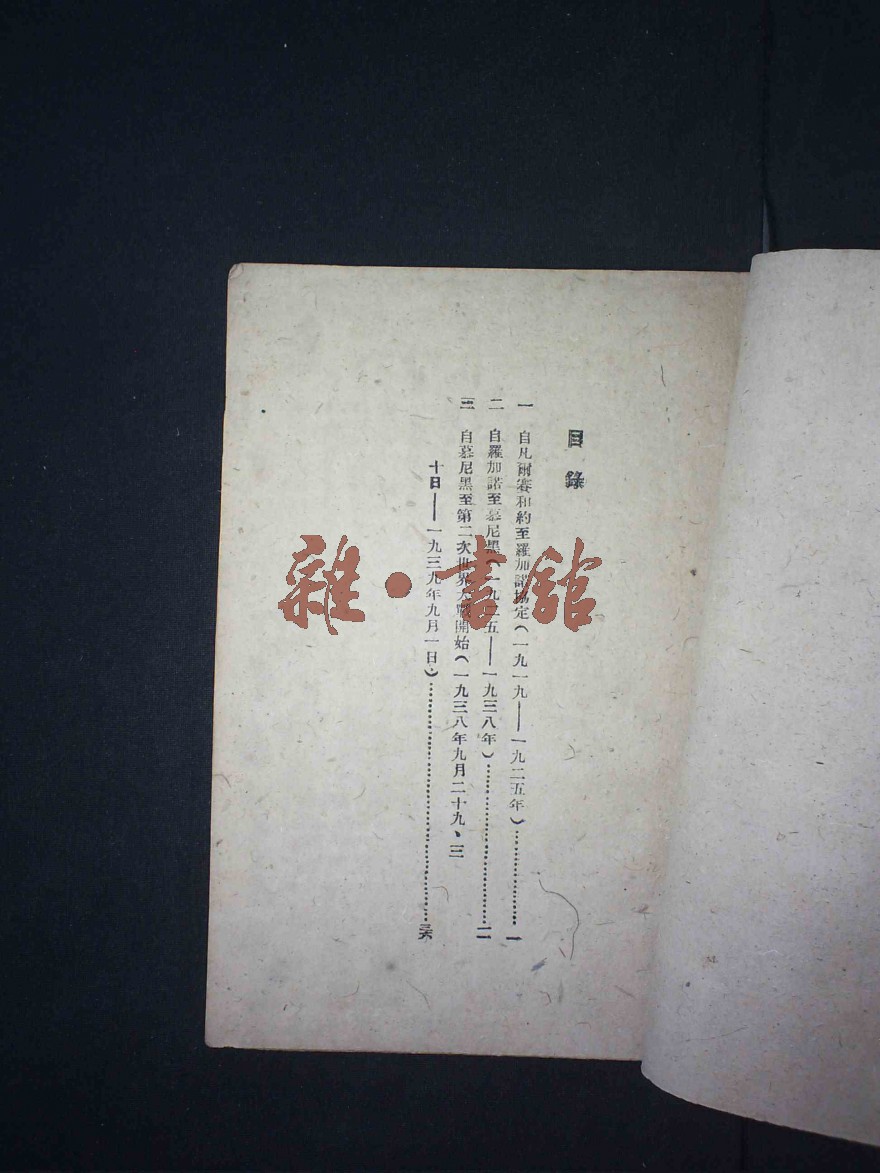 目錄
一 自凡爾賽和約至羅加諾協定(一九一九——一九二五年)……一
二 自羅加諾至慕尼黑(一九二五——一九三八年)……二
三 自慕尼黑至第二次世界大戰開始(一九三八年九月二十九、三
十日——一九三九年九月一日)……三六
雜·書館